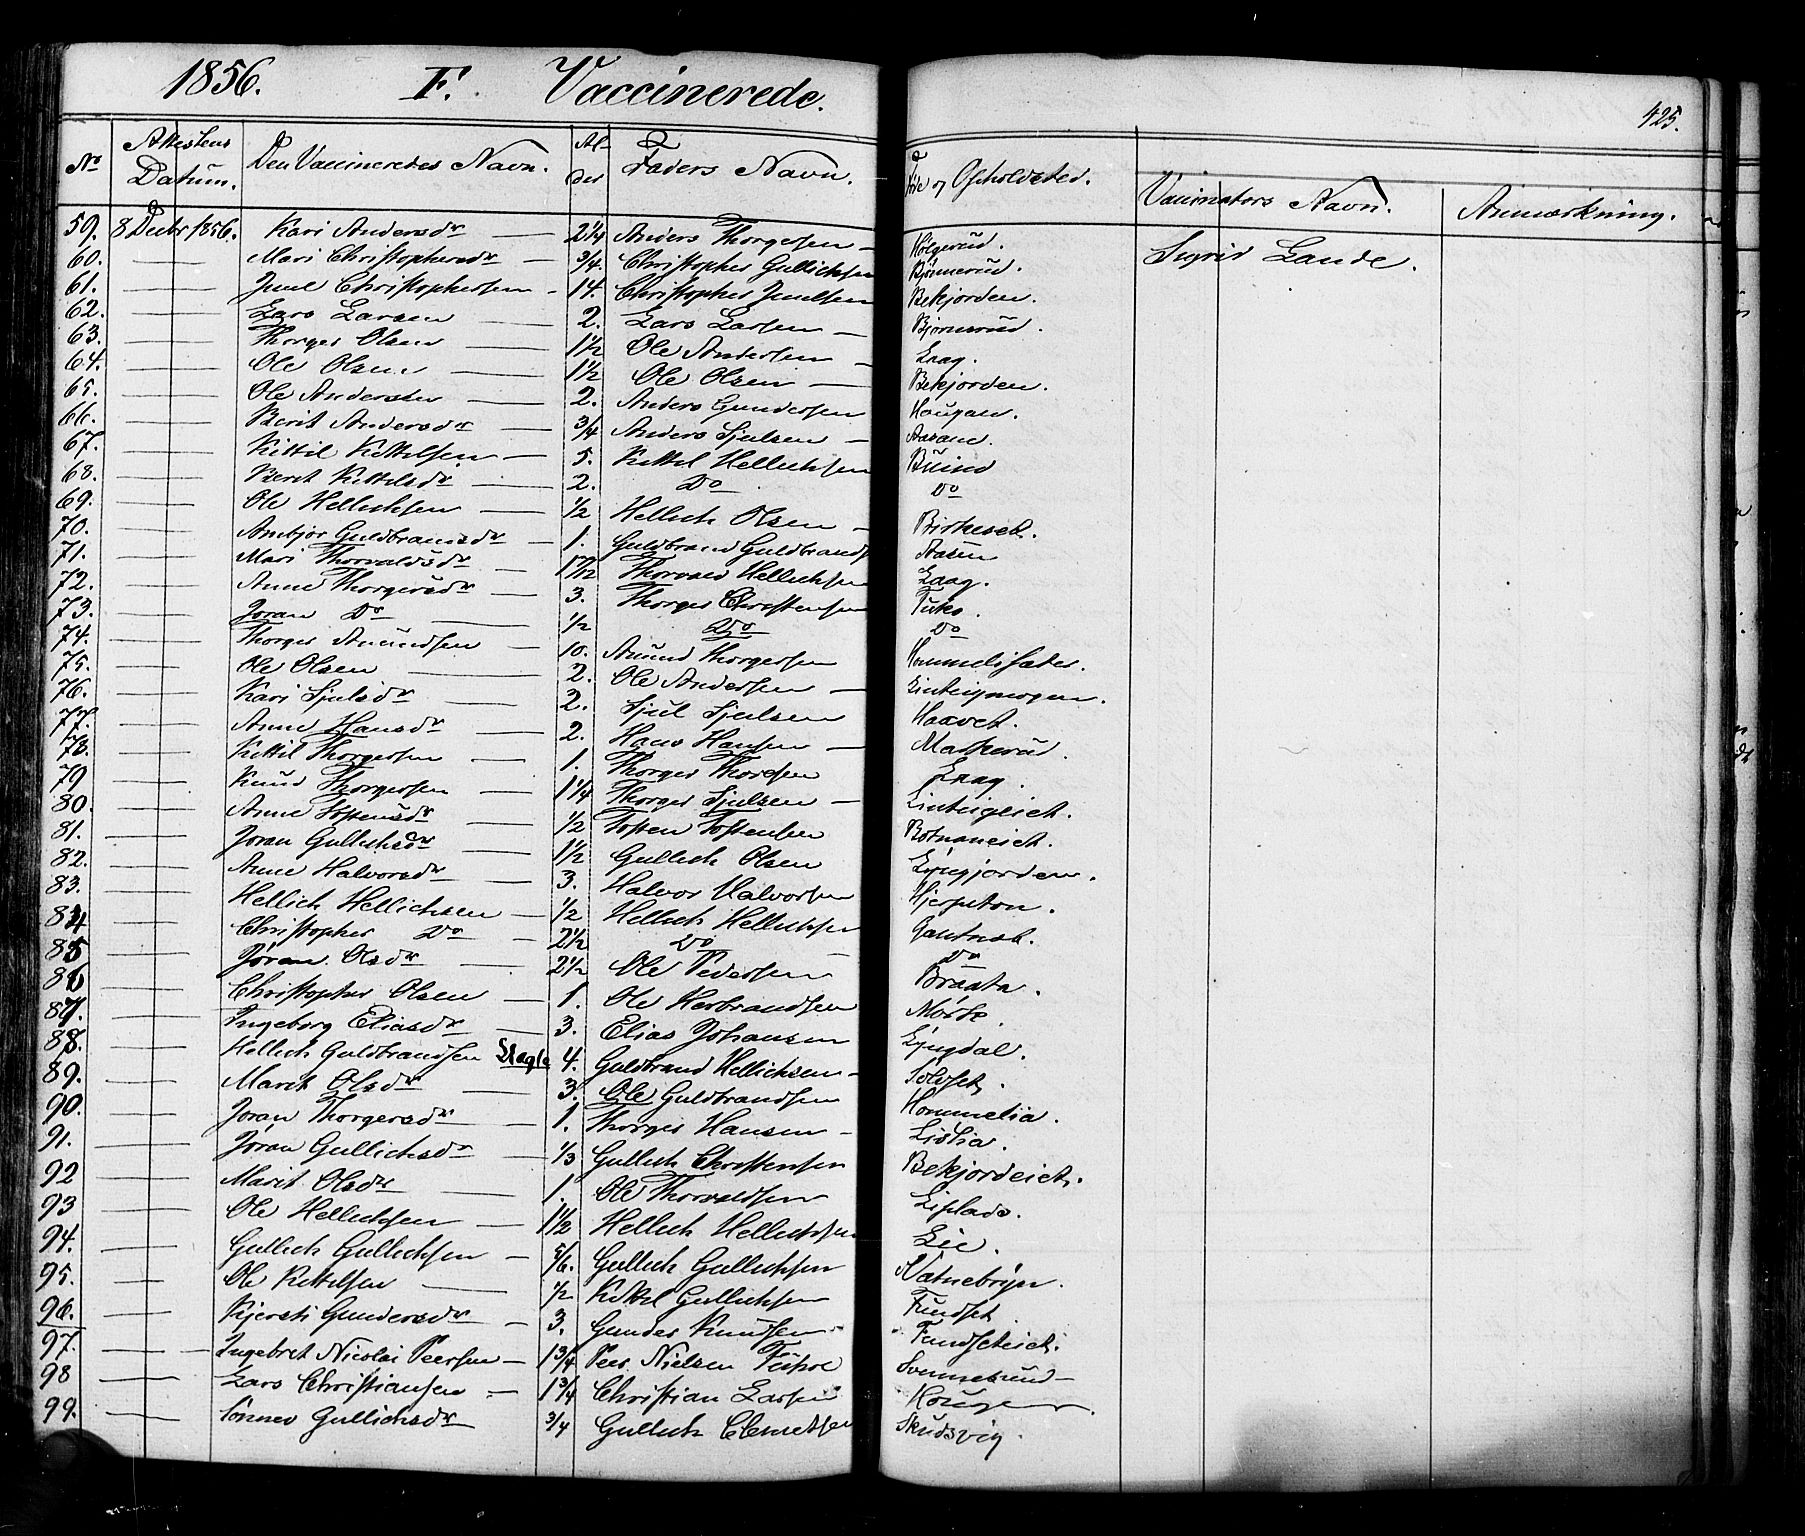 1856. F. Vaccinerede.
425.
No Attestens Datum. Den Vaccineredes Navn. Alder Faders Navn. og Opholdsted. Vaccinators Navn. Anmærkning.
59. 8 Decbr 1856. Kari Andersdr — 2 1/4 Anders Thorgersen — Kolgerud. Sigrid Lande.
60. — Mari Christophersdr — 3/4. Christopher Gullichsen Bjørnerud.
61. — Juul Christophersen — 14. Christopher Juulsen Bekjorden.
62. — Lars Larsen — 2. Lars Larsen — Bjørnerud.
63. — Thorger Olsen — 1 1/2 Ole Andersen — Laag.
64. — Ole Olsen — 1 1/2 Ole Olsen — Bekjorden.
65. — Ole Andersen — 2. Anders Gundersen Haugan.
66. — Berit Andersdr — 3/4 Anders Sjulsen — Aasan.
67. — Kittil Kittilsen — 5. Kittil Hellichsen
68. — Berit Kittilsdr — 2. Do Do
69. — Ole Hellichsen — 1/2 Hellich Olsen — Birkeset.
70. — Anbjør Guldbransdr — 1. Guldbrand Guldbrands Aasen
71. — Mari Thorvaldsdr — Thorvald Hellichsen Laag.
72. — Anne Thorgersdr — 3. Thorger Christensen
73. — Joran Do — 1/2 Do Do
74. — Thorger Amundsen — 10. Amund Thorgersen
75. — Ole Olsen — 2. Ole Andersen —
76. — Kari Sjulsdr — 2. Sjul Sjulsen
77. — Anne Hansdr — 2. Hans Hansen —
78. — Kittil Thorgersen — 1. Thorger Thoresen Laag.
79 — Knud Thorgersen — 1 1/4 Thorger Sjulsen — Linteigeiet.
80. — Anne Tostensdr — 1/2 Tosten Tostensen Botnaneiet.
81. — Joran Gullichsdr — 1 1/2 Gullich Olsen Lyngjorden.
82. — Anne Halvorsdr — 3. Halvor Halvorsen
83. — Hellich Hellichsen — 1/2 Hellich Hellichsen
84 — Christopher Do — 2 1/2 Do Do
85 — Jøran Olsdr — 2 1/2 Ole Pedersen Braata.
86 — Christopher Olsen — 1. Ole Herbrandsen
87. — Ingeborg Eliasdr — 3. Elias Johansen Lyngdal.
88. — Hellich Guldbrandsen Slagle 4. Guldbrand Hellichsen —
89. — Marit Olsdr — 3. Ole Guldbrandsen Hommelia.
90. — Joran Thorgersdr — 1. Thorger Hansen —
91. — Jøran Gullichsdr — 1/3 Gullich Christensen Bekjordeiet.
92 — Marit Olsdr — 1. Ole Thorvaldsen
93 — Ole Hellichsen — 1 1/2 Hellich Hellichsen Lie.
94. — Gullich Gullichsen — 5/6. Gullich Gullichsen Vatnebryn.
95. — Ole Kittilsen — 1/2 Kittil Gullichsen Fundset
96. — Kjersti Gundersdr — 3. Gunder Knudsen Fundseteiet.
97. — Ingebret Nicolai Peersen — 1 3/4 Peer Nielsen
98 — Lars Christiansen — 1 3/4 Christian Larsen Hougen.
99. — Sønnev Gullichsdr 3/4 Gullich Clemetsen Skudsvig